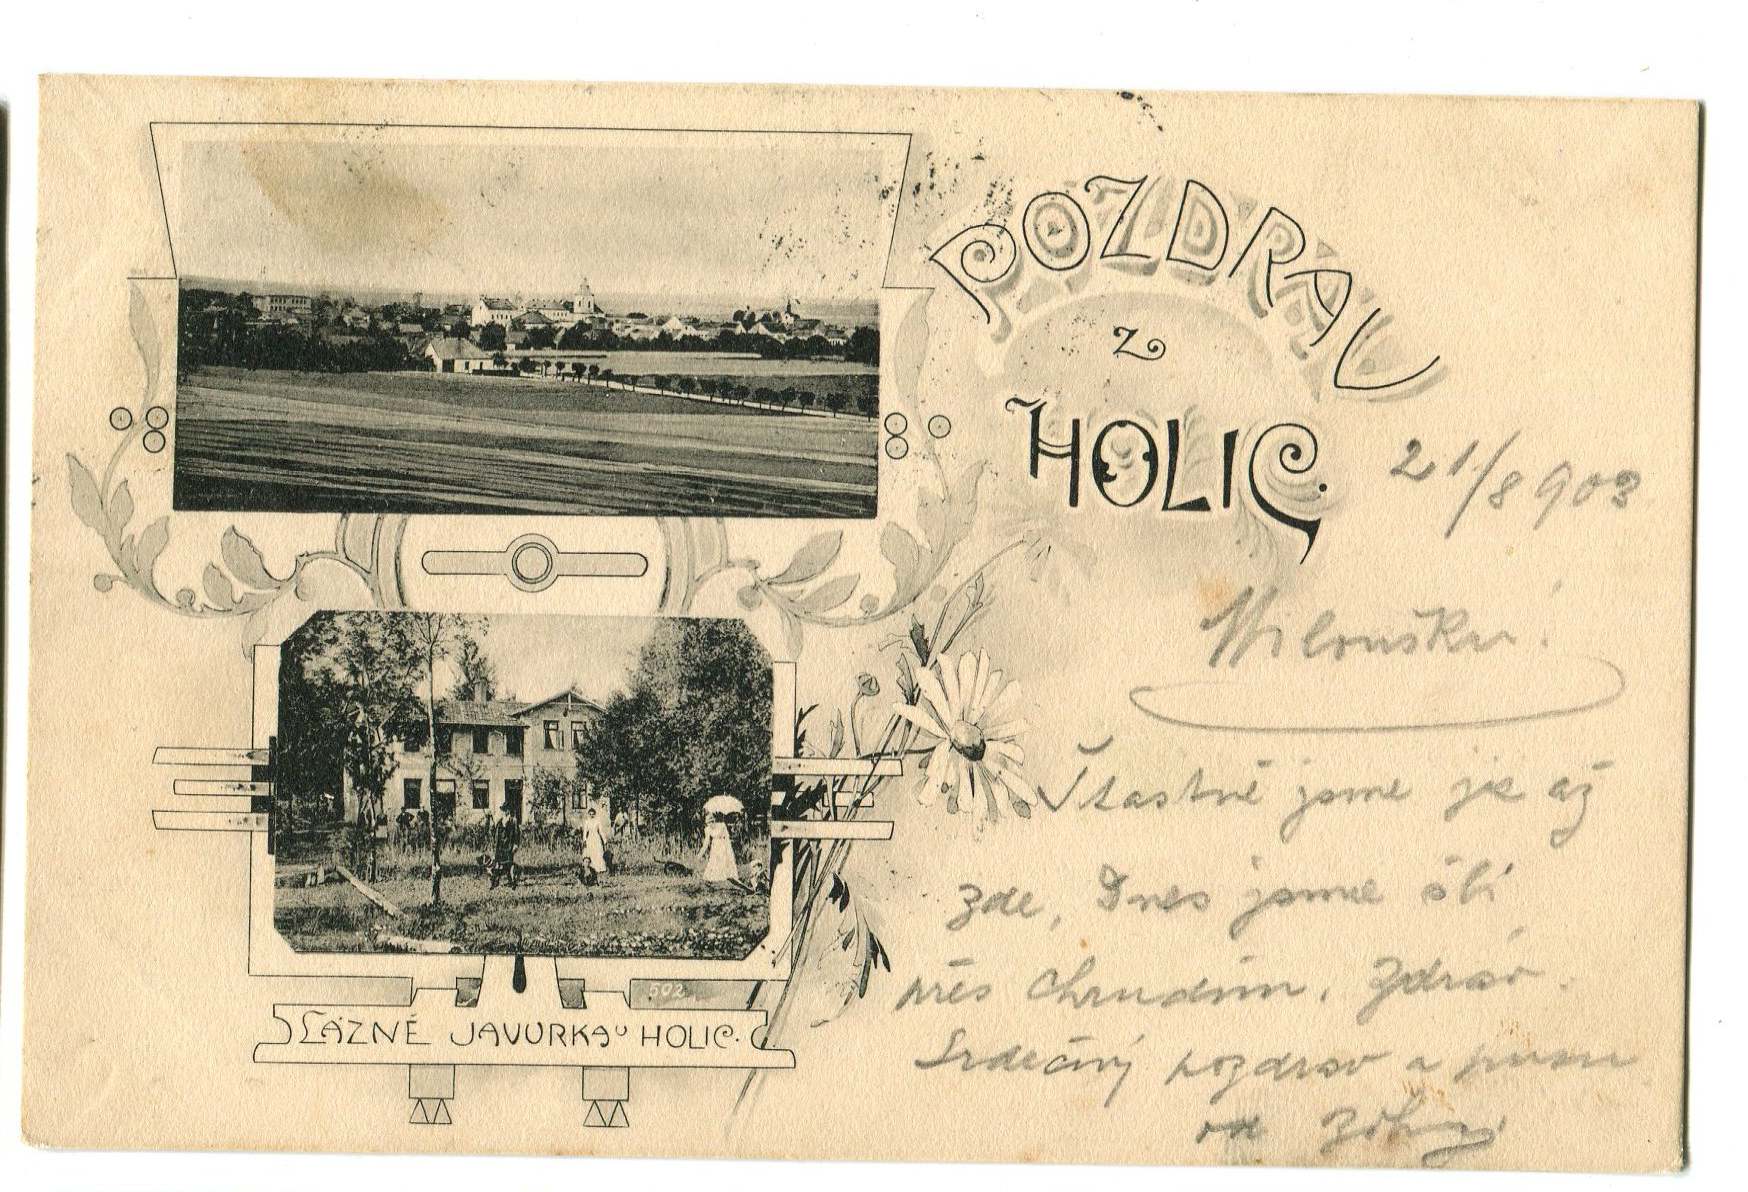 POZDRAV
z
HOLIC.
21/8 903
Miloušku!
Šťastně jsme je až
zde, Dnes jsme šli
přes Chrudim. Zdráv.
Srdečný pozdrav a pusu
od
502
LÁZNĚ JAVŮRKA U HOLIC.